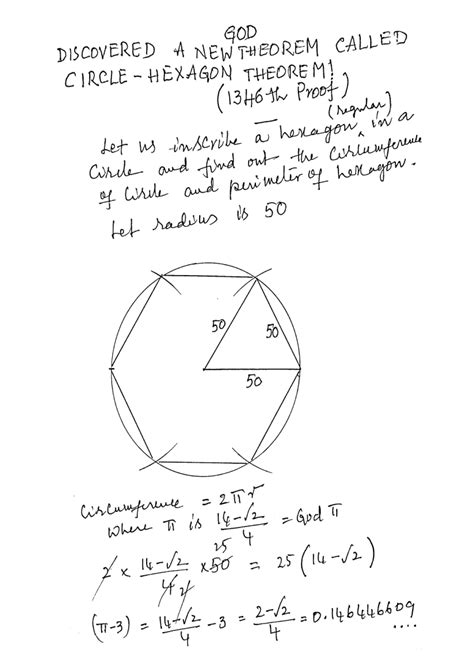 GOD
DISCOVERED A NEW THEOREM CALLED
CIRCLE-HEXAGON THEOREM!
(1346th Proof)
(regular)
Let us inscribe a hexagon, in a
Circle and find out the Circumference
of Circle and perimeter of hexagon.
Let radius is 50
50
50
50
Circumference = 2πr
Where π is (14-√2)/4 = God π
2 × (14-√2)/4 × 50 = 25 (14-√2)
25
2
(π-3) = (14-√2)/4 - 3 = (2-√2)/4 = 0.146446609
....